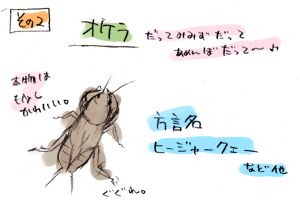 その2
オケラ
だってみみずだって
あめんぼだって〜♪
本物は
もう少し
かわいい。
方言名
ヒージャークェー
など他
ぐぐれ。